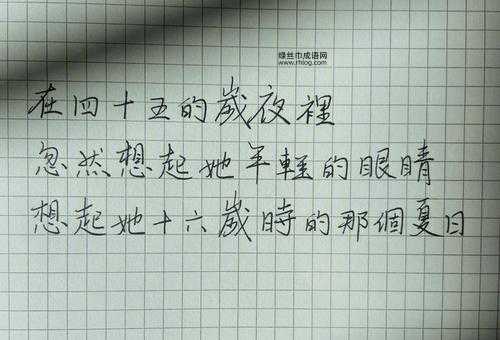 绿丝巾成语网
www.rhlog.com
在四十五的歲夜裡
忽然想起她年輕的眼睛
想起她十六歲時的那個夏日